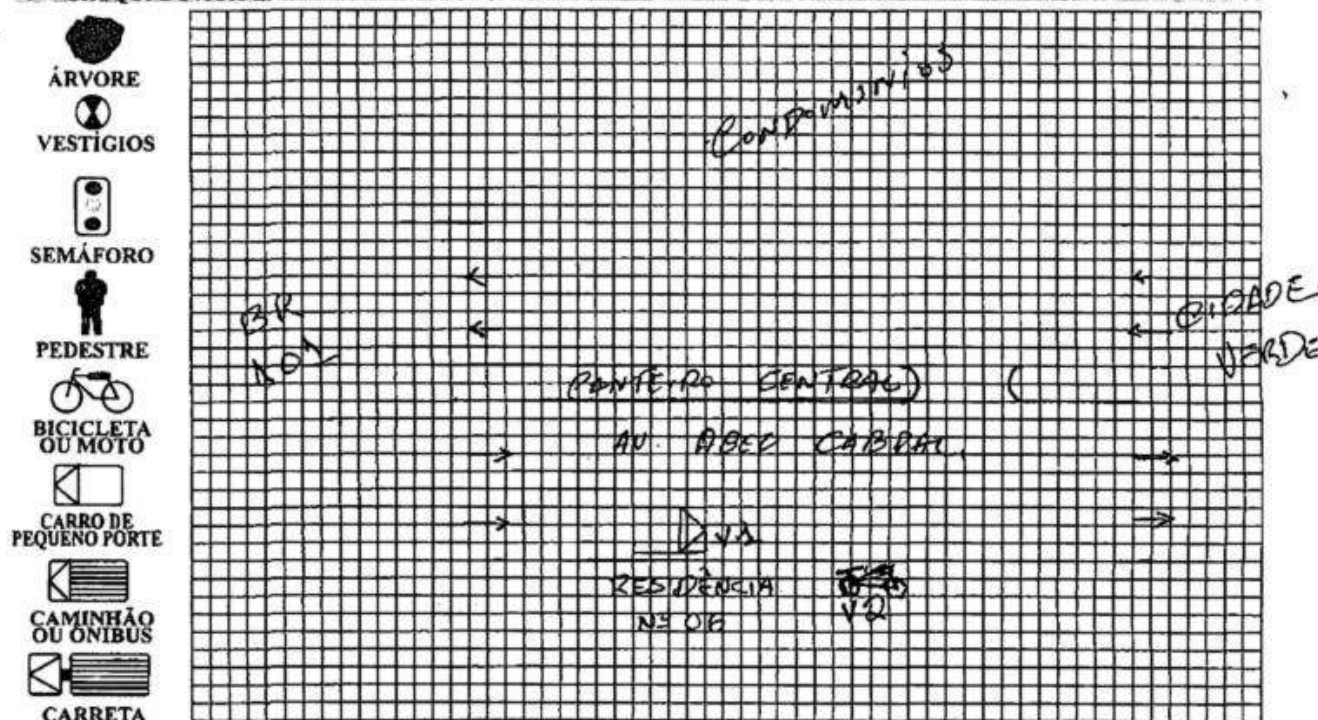 ÁRVORE
VESTÍGIOS
SEMÁFORO
PEDESTRE
BICICLETA
OU MOTO
CARRO DE
PEQUENO PORTE
CAMINHÃO
OU ÔNIBUS
CARRETA
CONDOMINIOS
BR
101
CIDADE
VERDE
CANTEIRO CENTRAL) (
AV. ABEL CABRAL.
V1
RESIDÊNCIA
Nº 06
V2